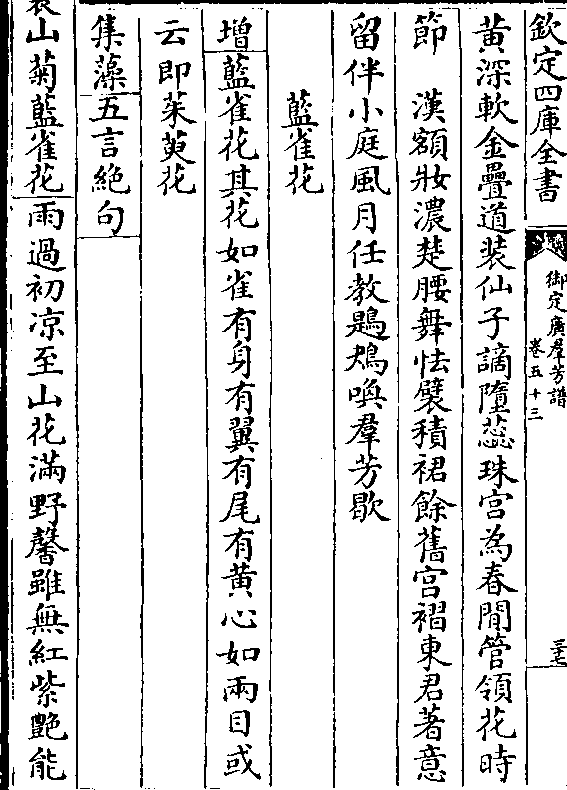 欽定四庫全書
御定廣羣芳譜
卷五十三
三七
黄深軟金疊道装仙子謫墮蕊珠宫為春閒管領花時
節　漢額妝濃楚腰舞怯襞積裙餘舊宫褶東君著意
留伴小庭風月任教鶗鴂喚羣芳歇
藍雀花
增藍雀花其花如雀有身有翼有尾有黄心如兩目或
云即茱萸花
集藻五言絶句
山菊藍雀花雨過初凉至山花滿野馨雖無紅紫艷能